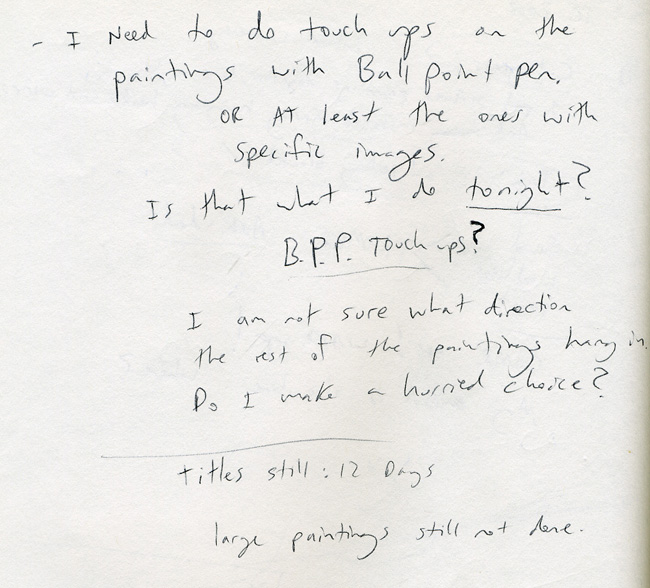 - I Need to do touch ups on the
paintings with Ball point pen.
OR At least the ones with
specific images.
Is that what I do tonight?
B.P.P. Touch ups?
I am not sure what direction
the rest of the paintings hang in.
Do I make a hurried choice?
titles still : 12 Days
large paintings still not done.